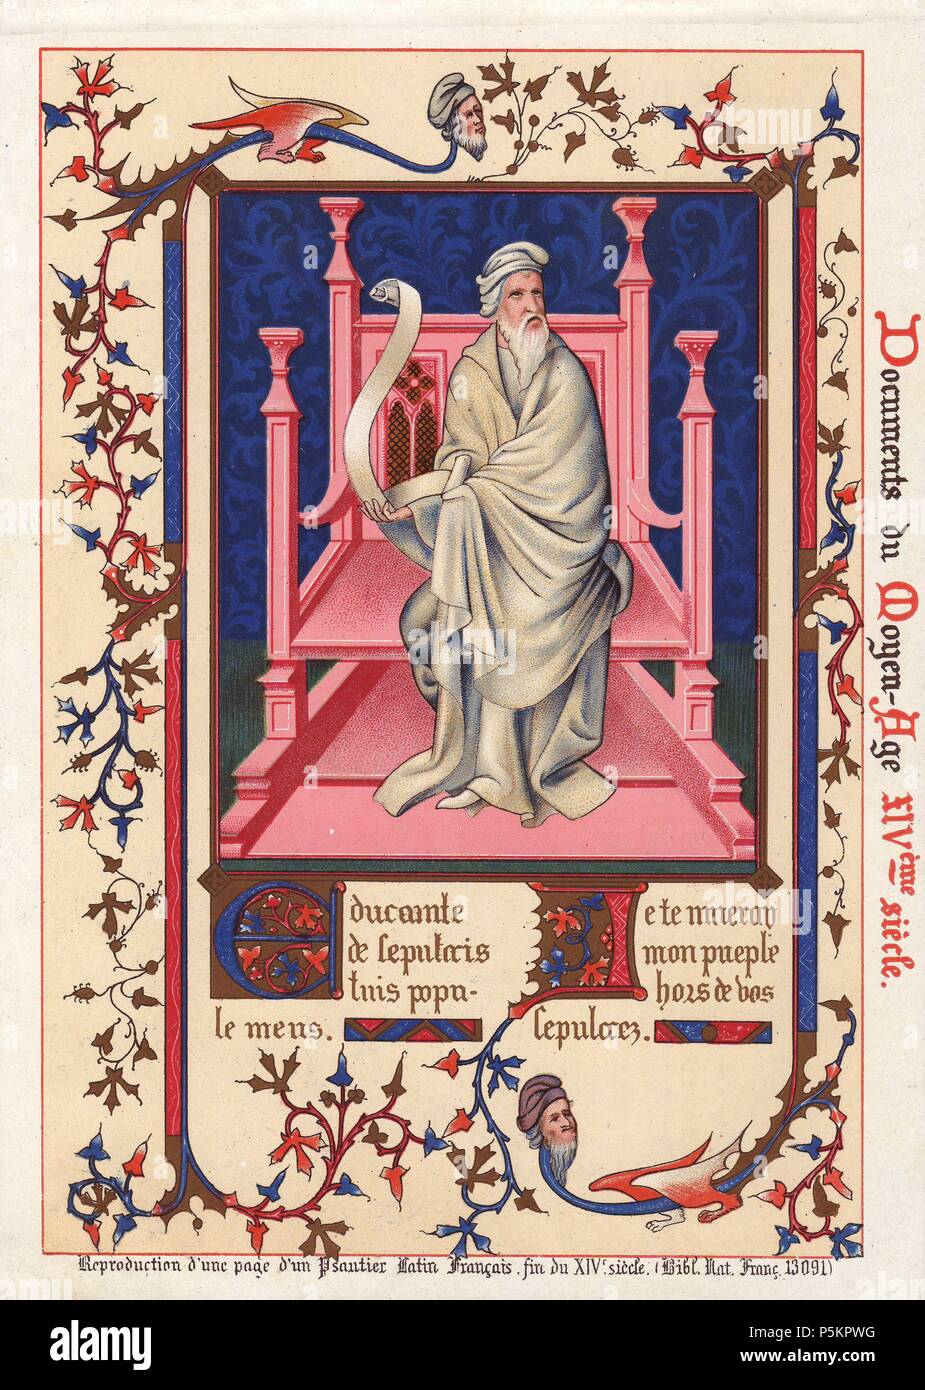 Educamte
de sepulcris
tuis popu-
le meus.
Je te mueray
mon pueple
hors de vos
sepulcrez.
Documents du Moyen-Age XIVème siècle.
Reproduction d'une page d'un Psautier Latin Français, fin du XIVe siècle. (Bibl. Nat. Franç. 13091)
alamy
Image ID: P5KPWG
www.alamy.com